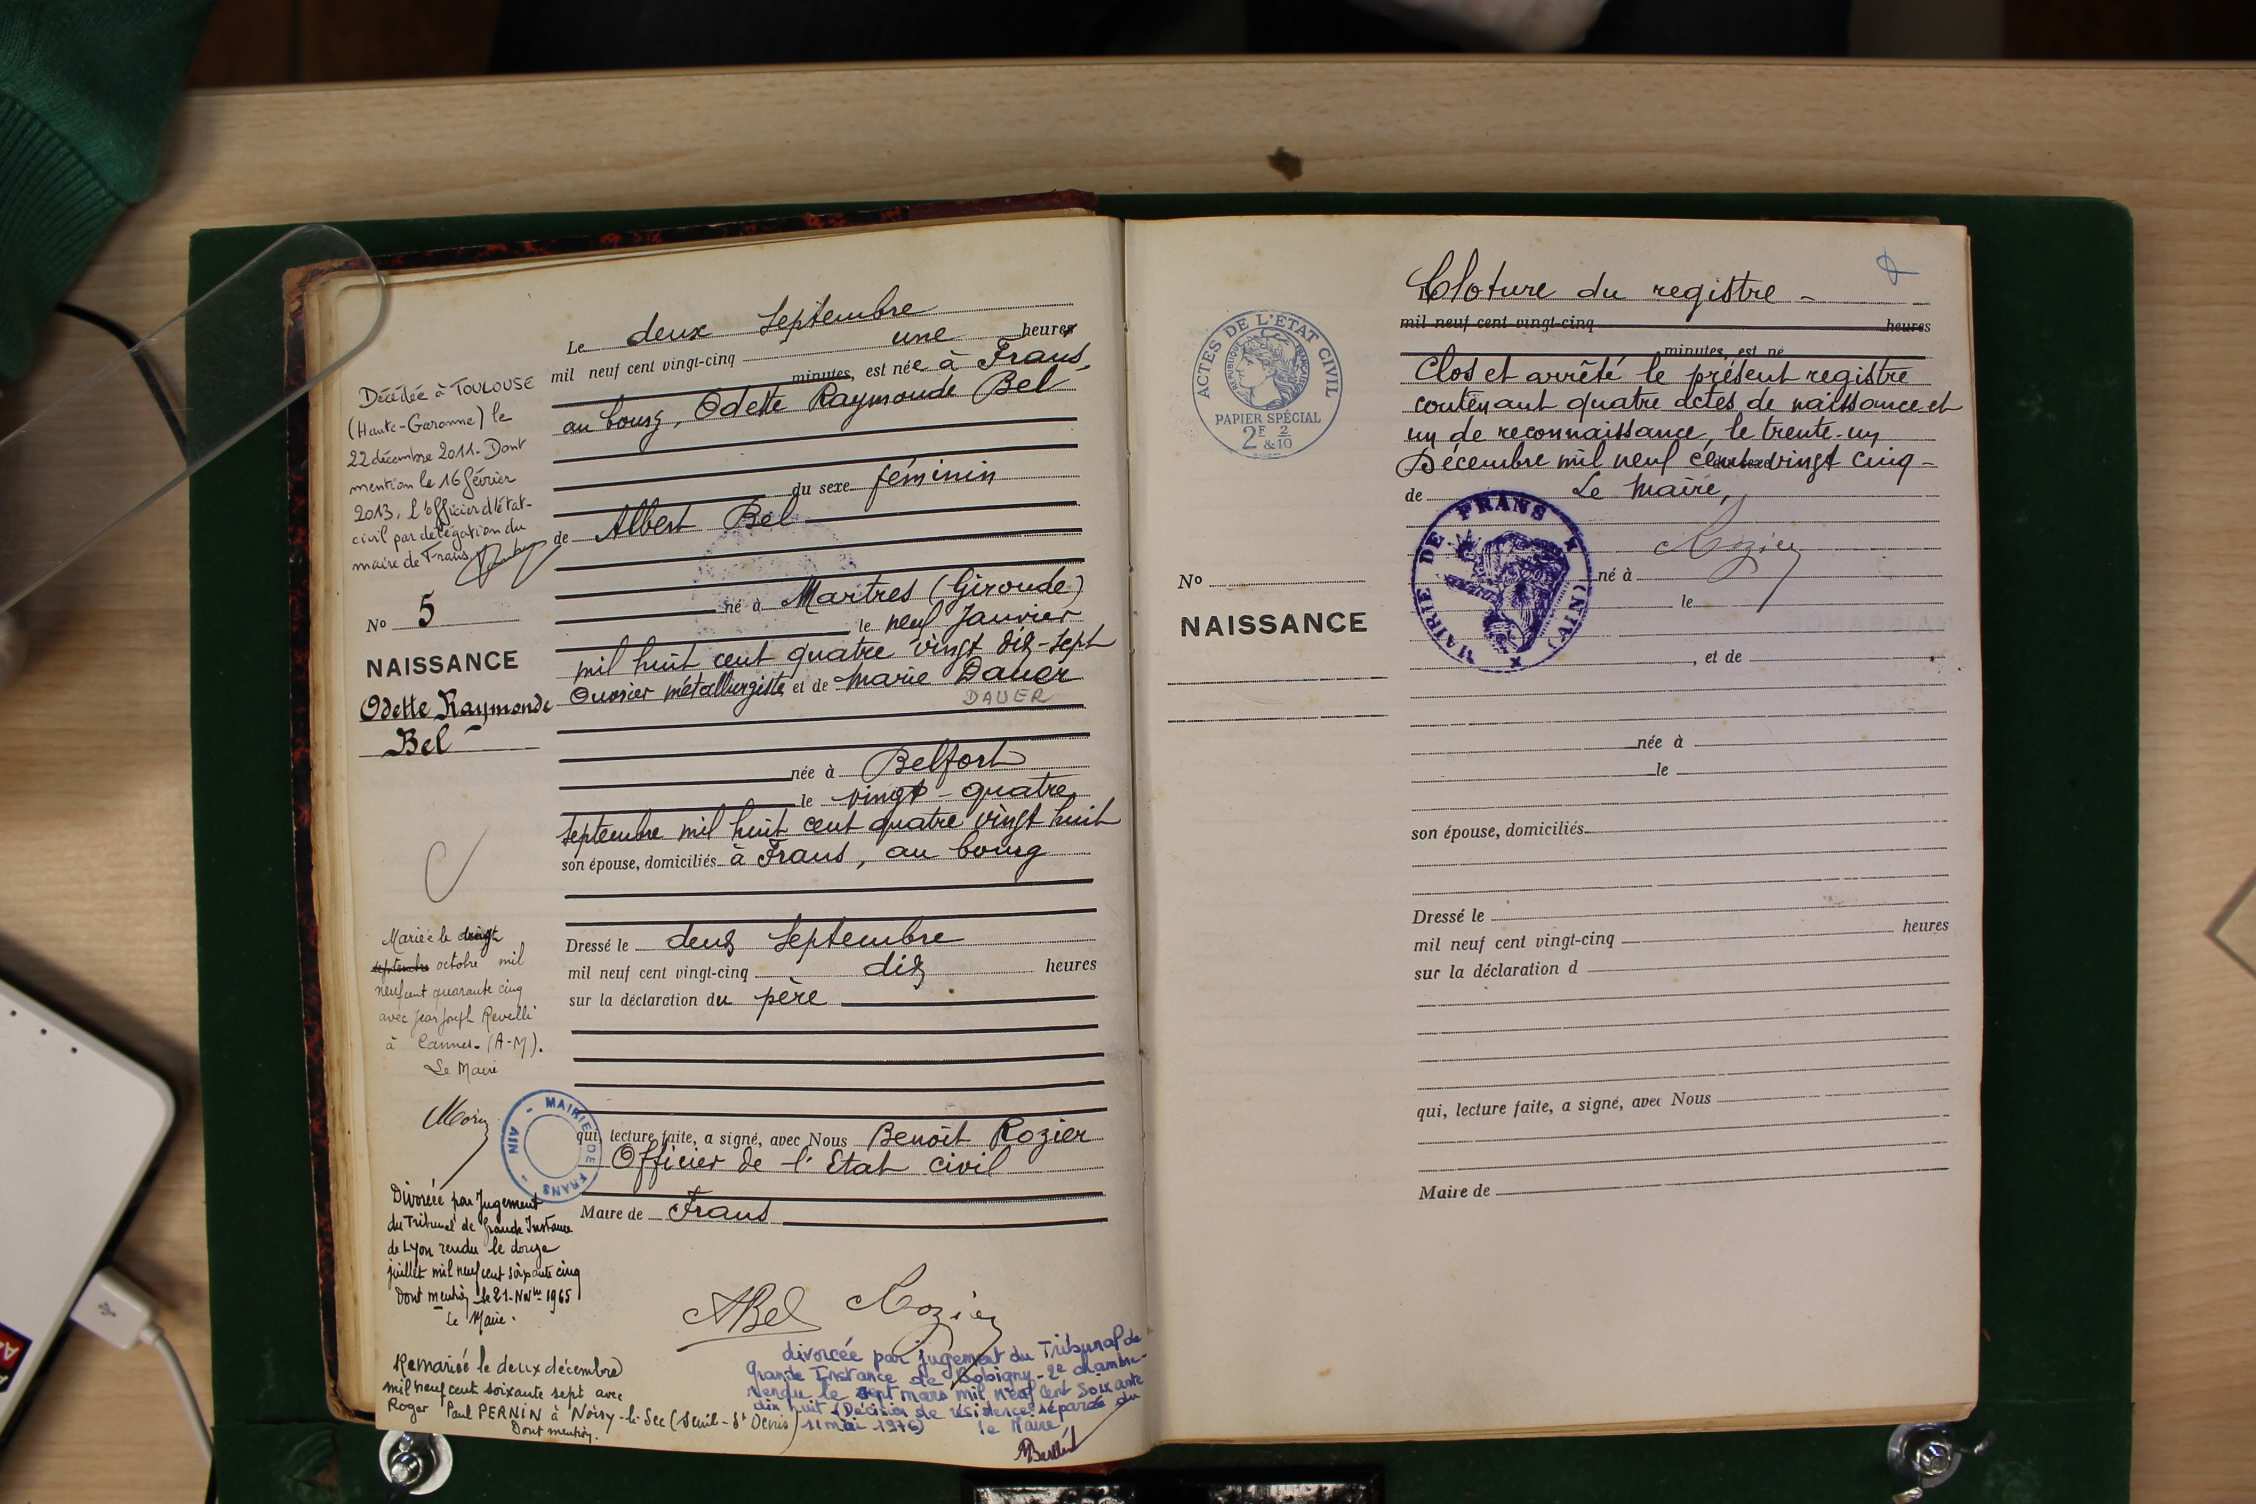 Le deux Septembre
mil neuf cent vingt-cinq une heures
minutes, est née à Frans,
au bourg, Odette Raymonde Bel
du sexe féminin
de Albert Bel
né à Martres (Gironde)
le neuf Janvier
mil huit cent quatre vingt dix-sept
Ouvrier métallurgiste et de Marie Dauer
DAUER
née à Belfort
le vingt-quatre
Septembre mil huit cent quatre vingt huit
son épouse, domiciliés à Frans, au bourg
Dressé le deux Septembre
mil neuf cent vingt-cinq dix heures
sur la déclaration du père
qui, lecture faite, a signé, avec Nous Benoît Rozier
Officier de l'Etat civil
Maire de Frans
ABel Rozier
Décédée à TOULOUSE
(Haute-Garonne) le
22 décembre 2011. Dont
mention le 16 février
2013. L'officier d'état-
civil par délégation du
maire de Frans
No 5
NAISSANCE
Odette Raymonde
Bel
Mariée le vingt
septembre octobre mil
neuf cent quarante cinq
avec Jean Joseph Revelli
à Cannes. (A-M).
Le Maire
MAIRIE DE FRANS - AIN -
Divorcée par Jugement
du Tribunal de Grande Instance
de Lyon rendu le douze
juillet mil neuf cent soixante cinq
Dont mention le 21 Nov 1965
Le Maire.
Remariée le deux décembre
mil neuf cent soixante sept avec
Roger Paul PERNIN à Noisy-le-Sec (Seine-St Denis)
Dont mention.
divorcée par jugement du Tribunal de
Grande Instance de Bobigny - 2e chambre -
rendu le sept mars mil neuf cent soixante
dix huit (Décision de résidence séparée du
11 mai 1976) le Maire,
ACTES DE L'ÉTAT CIVIL
RÉPUBLIQUE FRANÇAISE
PAPIER SPÉCIAL
2F & 2/10
No
NAISSANCE
Cloture du registre -
mil neuf cent vingt-cinq heures
minutes, est né
Clos et arrêté le présent registre
contenant quatre actes de naissance et
un de reconnaissance, le trente-un
Décembre mil neuf cent vingt cinq -
de Le Maire,
Rozier
MAIRIE DE FRANS (AIN)
né à
le
, et de
née à
le
son épouse, domiciliés
Dressé le
mil neuf cent vingt-cinq heures
sur la déclaration d
qui, lecture faite, a signé, avec Nous
Maire de